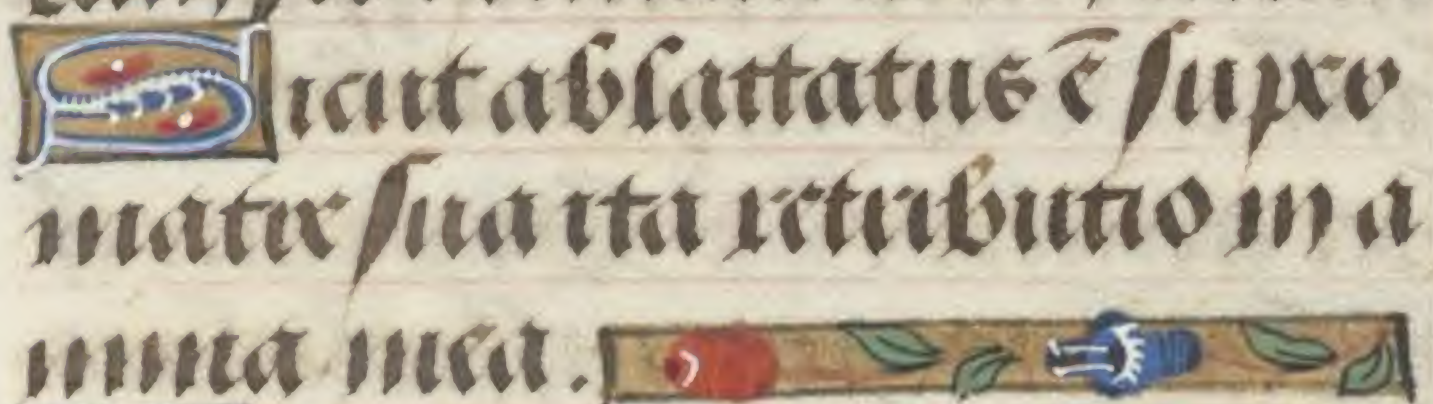 Sicut ablattatus ē supro
matre sua ita retributio in a
nima mea.